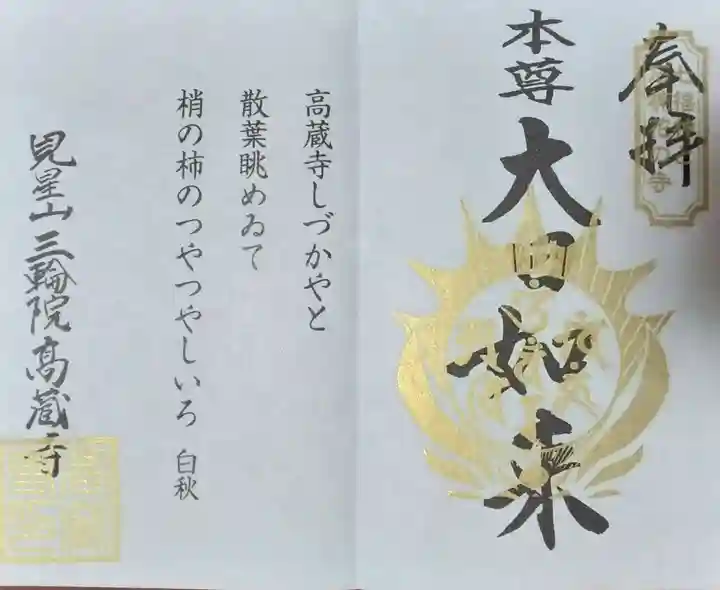 奉拝
本尊
大日如来
高蔵寺しづかやと
散葉眺めゐて
梢の柿のつやつやしいろ 白秋
見星山三輪院高蔵寺